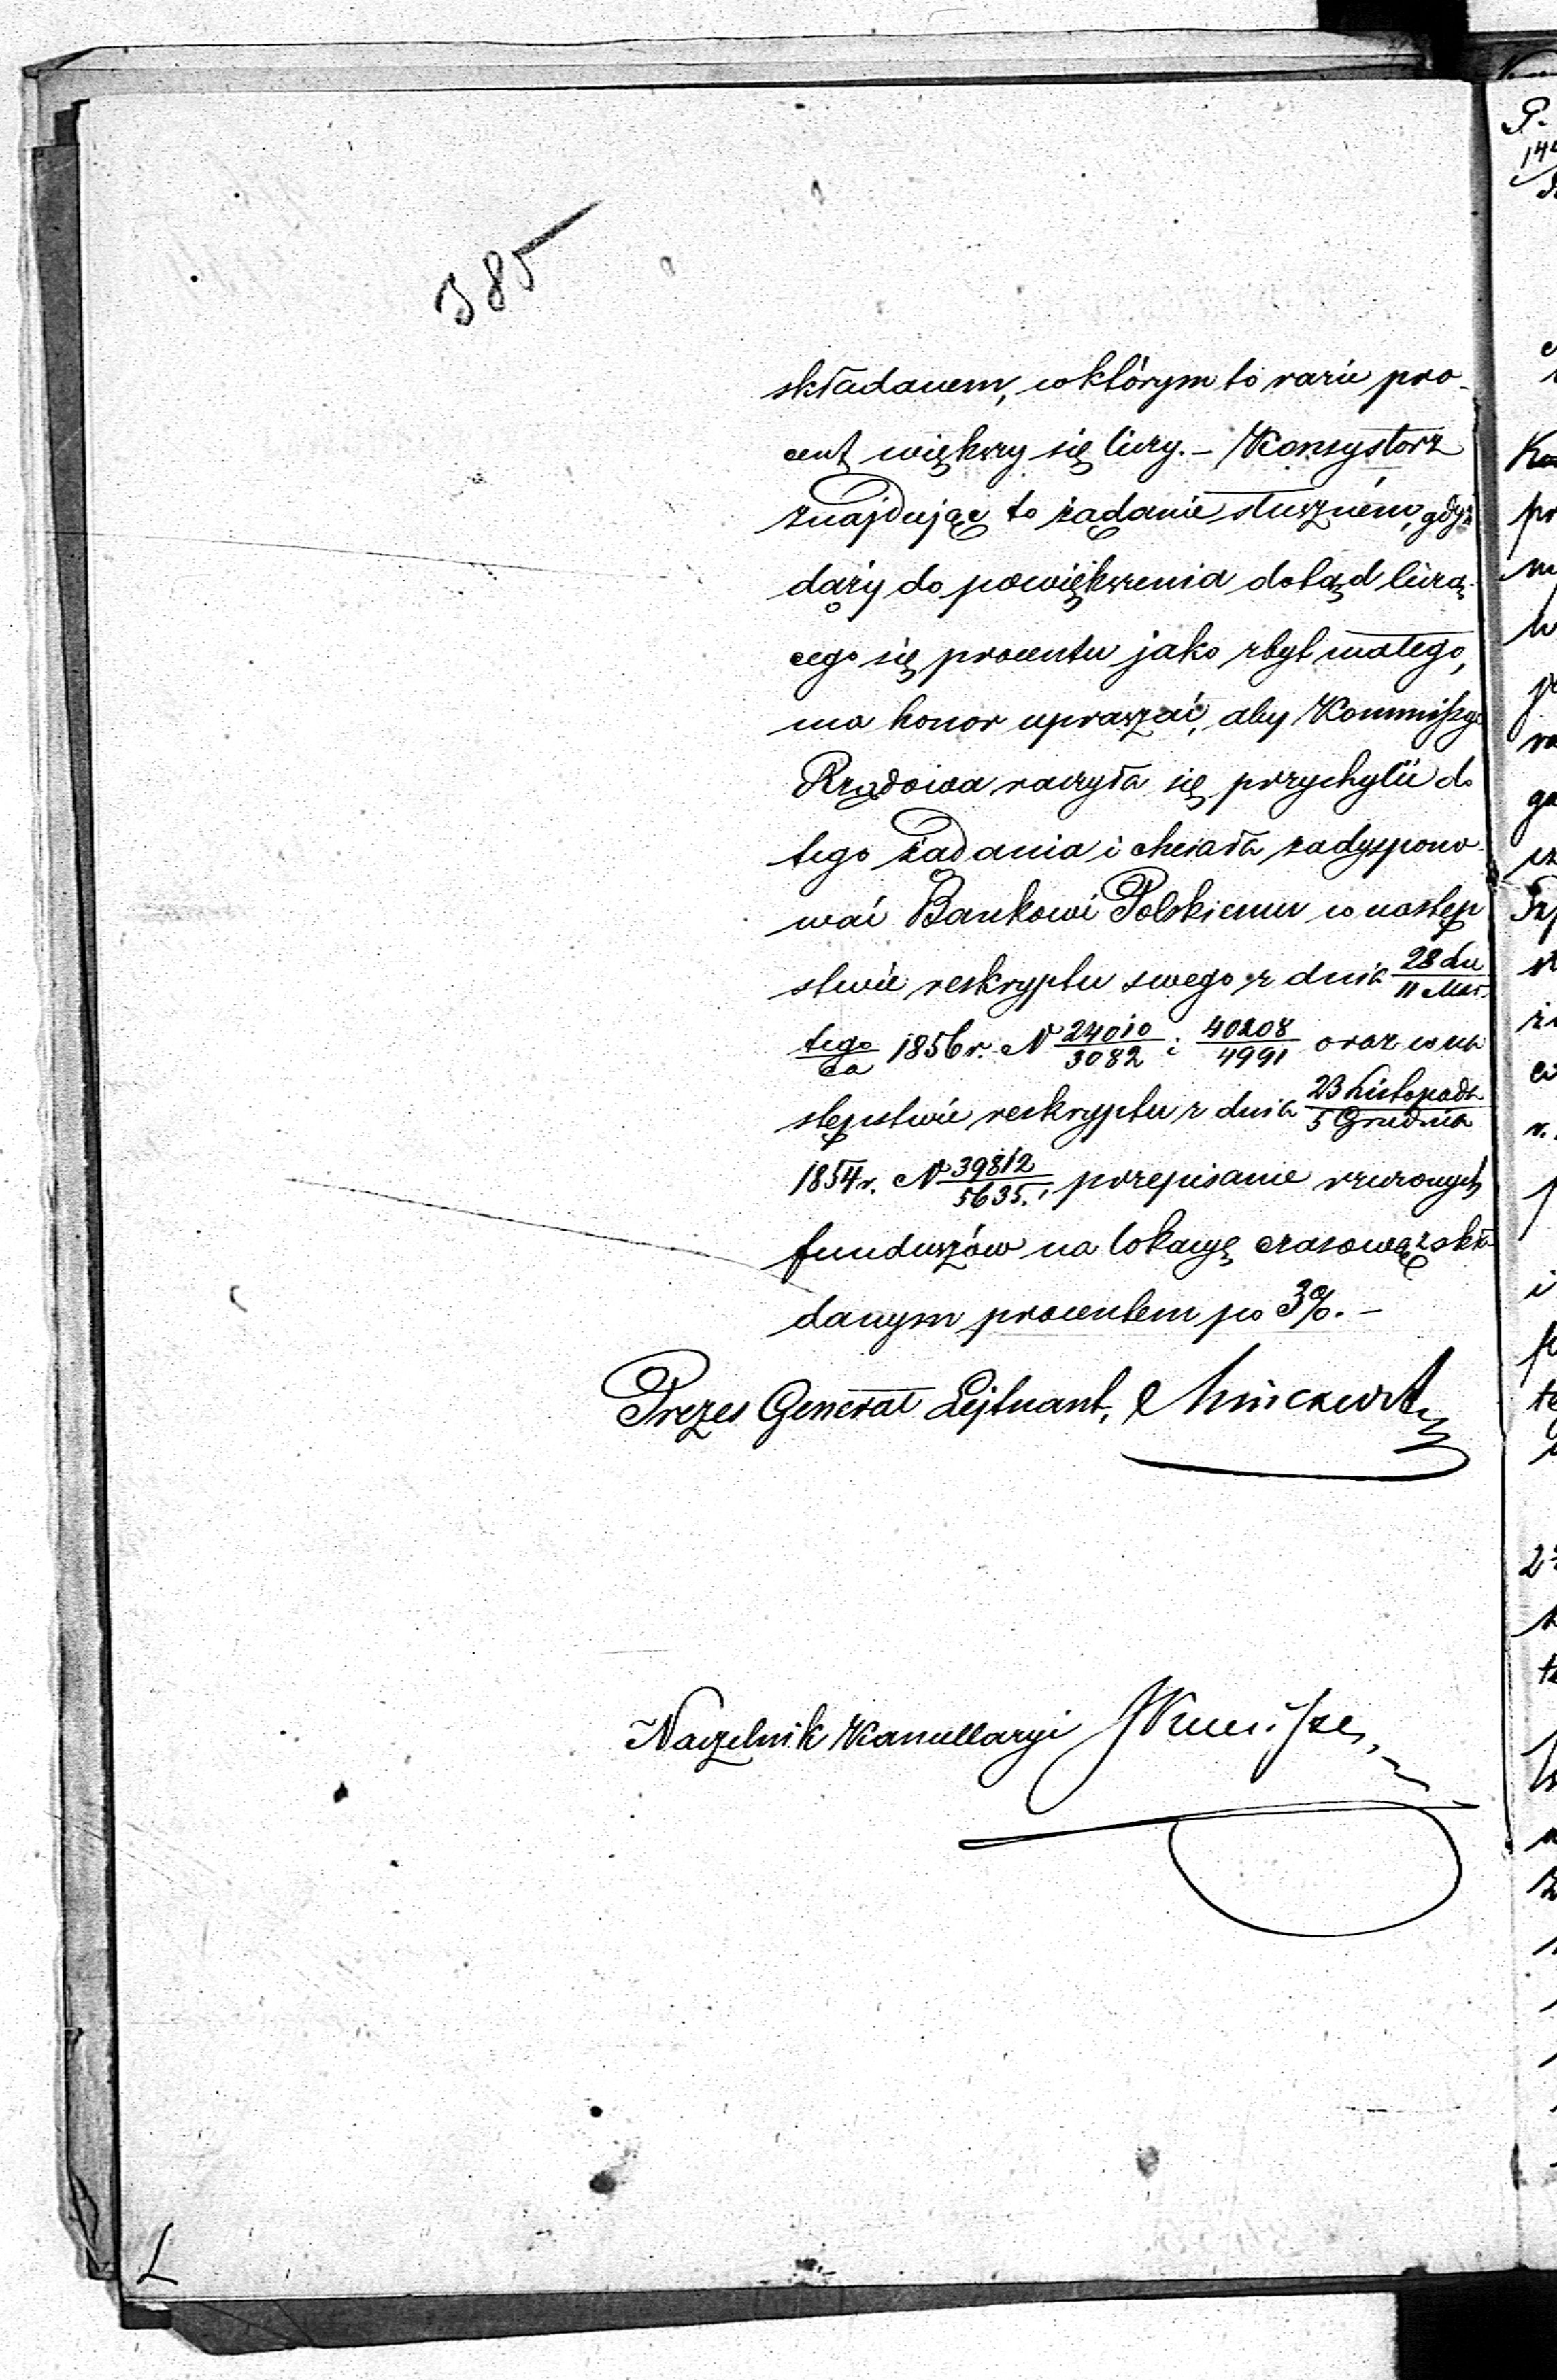 385
składanem, w którym to razie pro-
cent większy się liczy. – Konsystorz
znajdując to żądanie słusznem, gdyż
dąży do powiększenia dotąd liczą-
cego się procentu jako zbyt małego,
ma honor upraszać, aby Kommissya
Rządowa raczyła się przychylić do
tego żądania i chciała zadyspono-
wać Bankowi Polskiemu w następ
stwie reskryptu swego z dnia 28 Lu/11 Mar
tego/ca 1856 r. N 24010/3082 i 40208/4991 oraz w na
stępstwie reskryptu z dnia 23 Listopada/5 Grudnia
1854 r. N 39812/5635., przepisanie rzeczonych
funduszów na lokacyę czasową z skła
danym procentem po 3%. –
Prezes Generał Lejtnant,
Naczelnik Kancellaryi
L